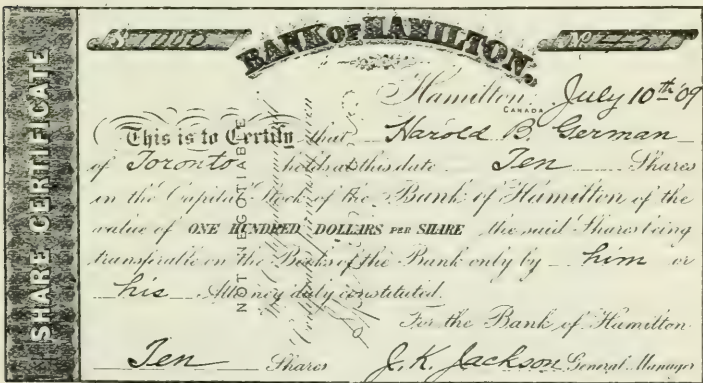 SHARE CERTIFICATE
$1000
BANK OF HAMILTON.
Hamilton, July 10th '09
CANADA
This is to Certify that Harold B. German
of Toronto holds at this date Ten Shares
in the Capital Stock of the Bank of Hamilton of the
value of ONE HUNDRED DOLLARS PER SHARE the said Shares being
transferable on the Books of the Bank only by him or
his Attorney duly constituted.
NOT NEGOTIABLE
For the Bank of Hamilton
Ten Shares J. K. Jackson General Manager